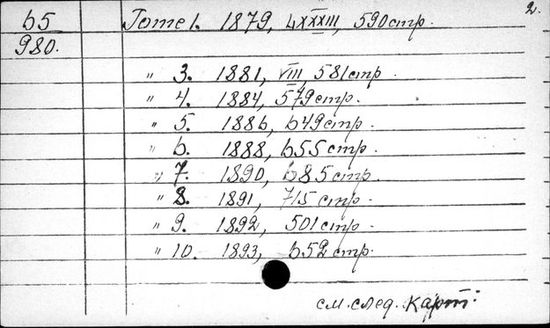 2.
65 Tome 1. 1879, LXXXIII, 590 стр.
980.
" 3. 1881, VIII, 581 стр.
" 4. 1884, 579 стр.
" 5. 1886, 649 стр.
" 6. 1888, 655 стр.
" 7. 1890, 685 стр.
" 8. 1891, 715 стр.
" 9. 1892, 501 стр.
" 10. 1893, 652 стр.
см. след. карт: